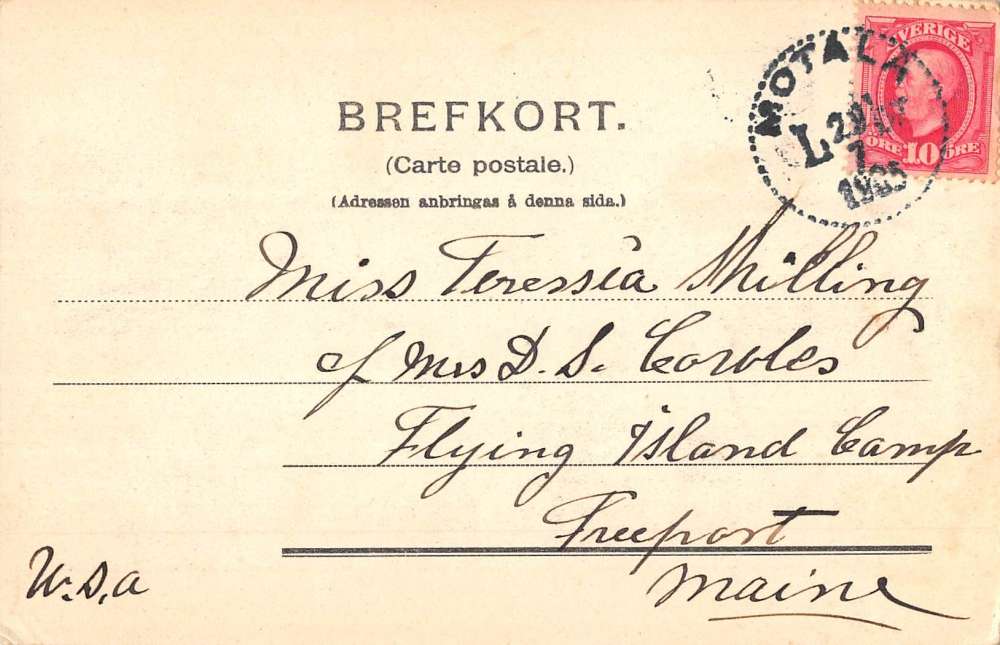 BREFKORT.
(Carte postale.)
(Adressen anbringas å denna sida.)
SVERIGE
ÖRE 10 ÖRE
MOTALA
L
7
1905
Miss Teressia
c/ Mrs D. S. Cowles
Flying Island Camp
Freeport
Maine
U.S.A